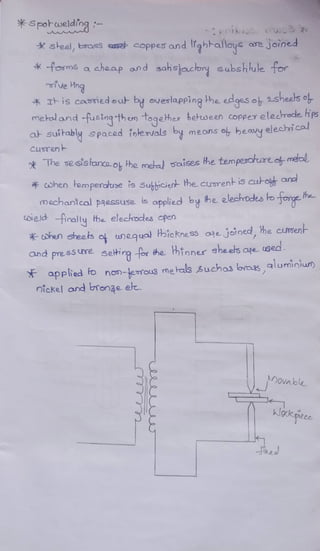 * Spot welding :-
* steel, brass copper and light alloys are joined
* forms a cheap and satisfactory substitute for
rive ting
* It is carried out by overlapping the edges of 2 sheets of
metal and fusing them together between copper electrode tips
at suitably spaced intervals by means of heavy electrical
current
* The resistance of the metal raises the temperature of metal
* when temperature is sufficient the current is cut off and
mechanical pressure is applied by the electrodes to forge the
weld finally the electrodes open
* when sheets of unequal thickness are joined, the current
and pressure setting for the thinner sheets are used.
* applied to non-ferrous metals such as brass, aluminium,
nickel and bronze etc.
Movable
Workpiece
fixed